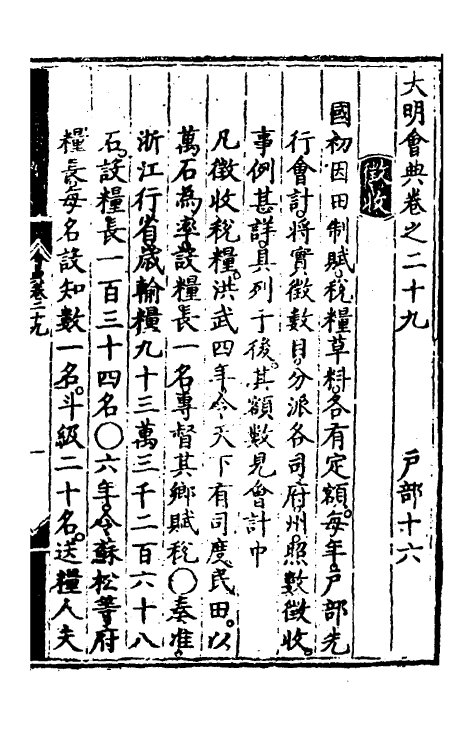 大明會典卷之二十九　戶部十六
徵收
國初因田制賦。稅糧草料。各有定額。每年。戶部先
行會計。將實徵數目。分派各司府州。照數徵收。
事例甚詳。具列于後。其額數見會計中
凡徵收稅糧。洪武四年。令天下有司度民田。以
萬石為率。設糧長一名。專督其鄉賦稅〇奏准。
浙江行省歲輸糧九十三萬三千二百六十八
石。設糧長一百三十四名〇六年。令蘇松等府
糧長每名設知數一名。斗級二十名。送糧人夫
會典卷二十九
一